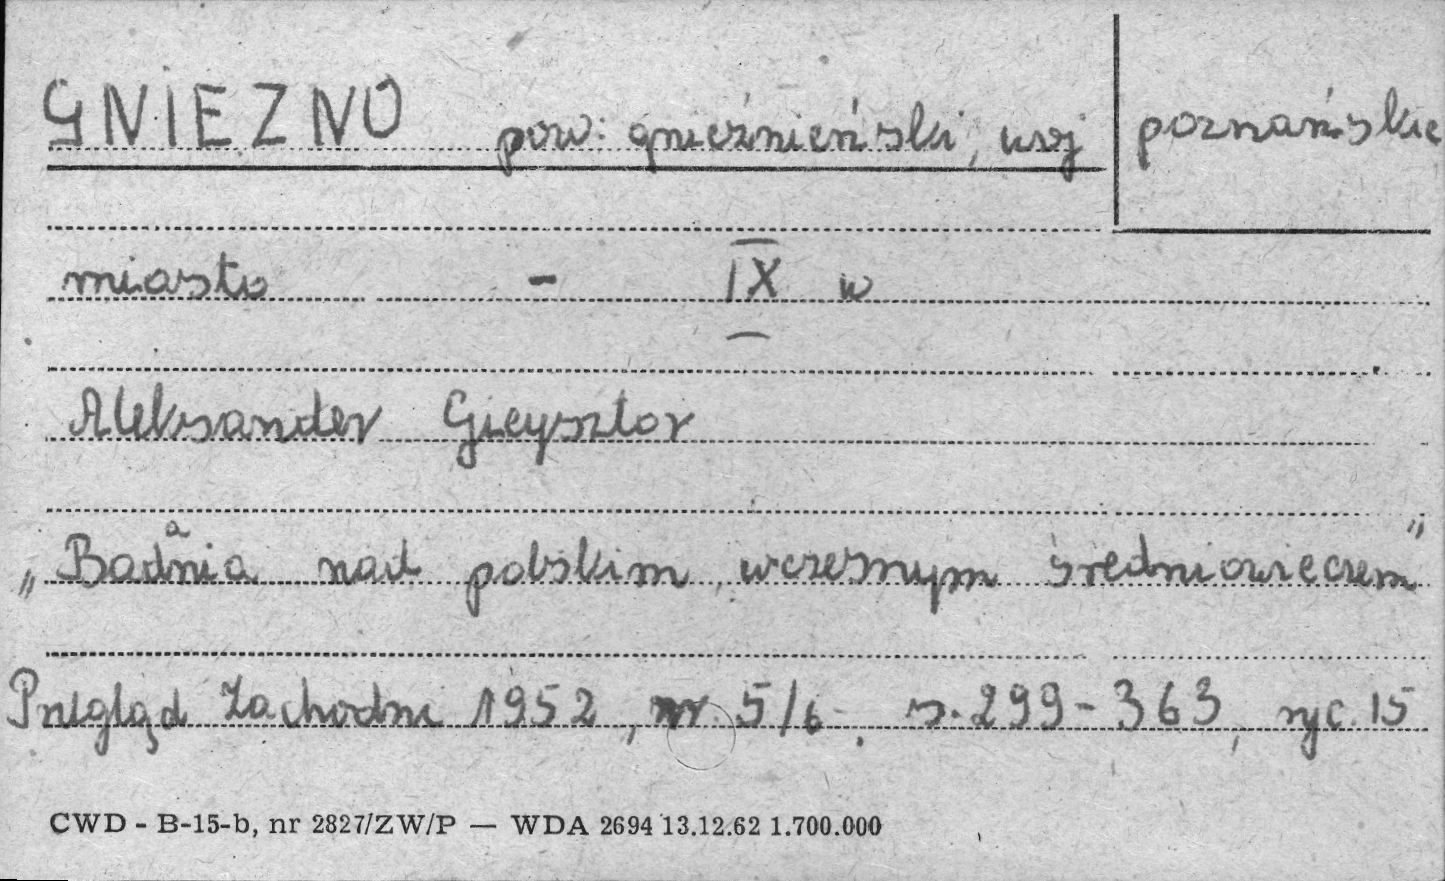 GNIEZNO pow. gnieźnieński, woj poznańskie
miasto - IX w
Aleksander Gieysztor
„Badania nad polskim wczesnym średniowieczem”
Przegląd Zachodni 1952, nr. 5/6, s. 299-363, ryc. 15
CWD - B-15-b, nr 2827/ZW/P — WDA 2694 13.12.62 1.700.000